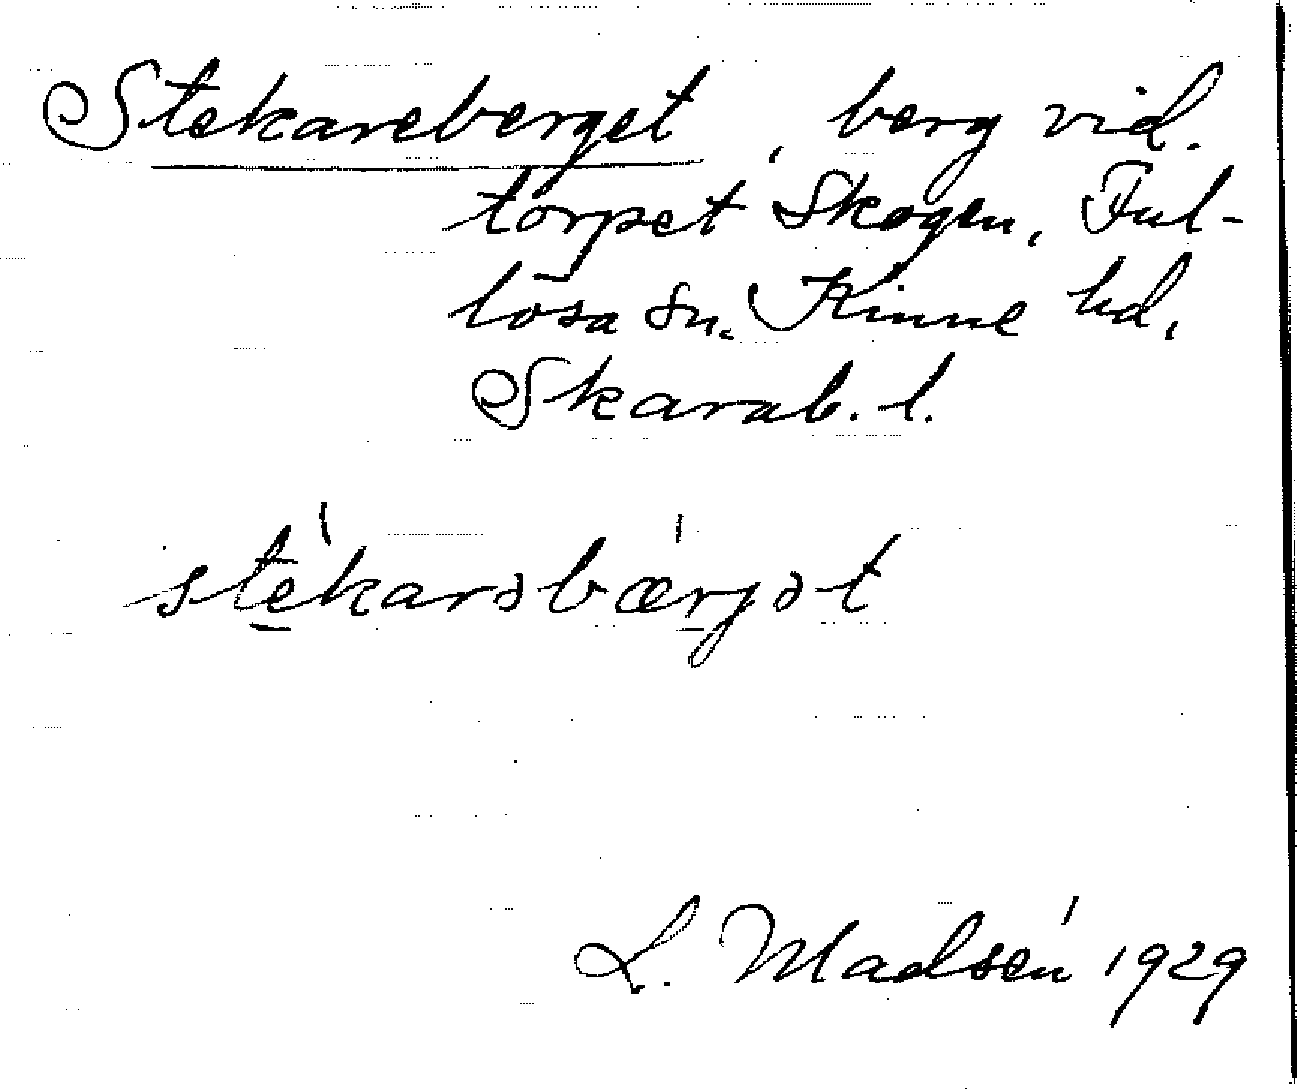 Stekareberget, berg vid.
torpet Skogen, Ful-
lösa sn. Kinne hd,
Skarab. l.
stèkarəbærjət
L. Madsén 1929